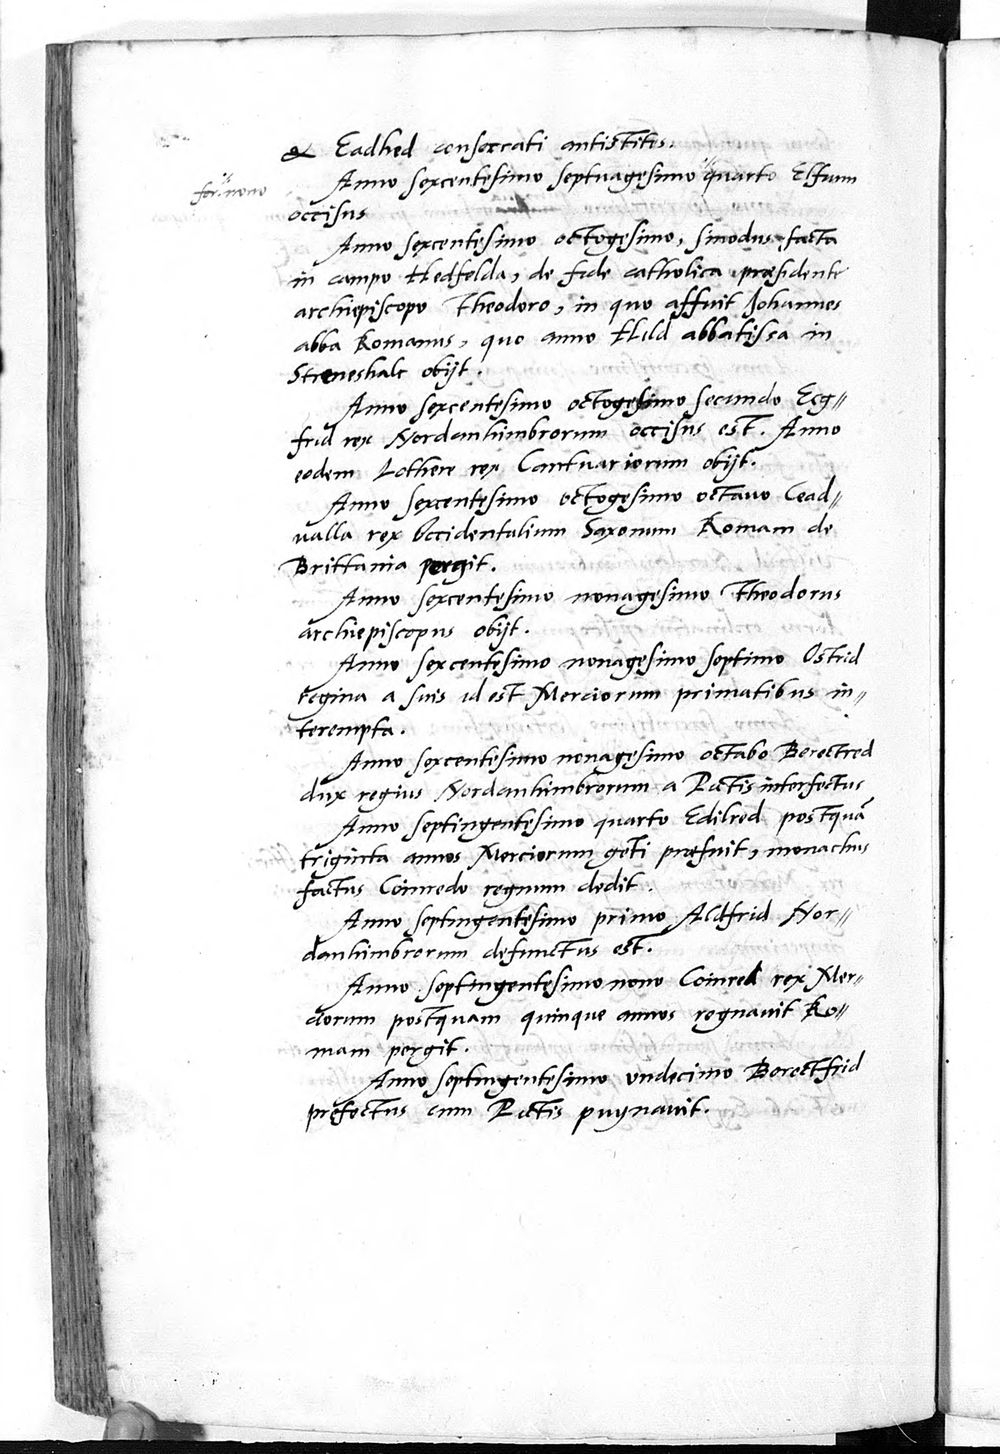 & Eadhed consecrati antistites.
Anno sexcentesimo septuagesimo "quarto Elfuum
for. "nono
occisus
Anno sexcentesimo octogesimo, sinodus facta
in campo Hedfelda, de fide catholica præsidente
archiepiscopo Theodoro, in quo affuit Johannes
abba Romanus, quo anno Hild abbatissa in
Streneshalc obijt.
Anno sexcentesimo octogesimo secundo Ecg//
frid rex Nordanhimbrorum occisus est. Anno
eodem Lothere rex Cantuariorum obijt.
Anno sexcentesimo octogesimo octauo Cead//
ualla rex Occidentalium Saxonum Romam de
Brittania pergit.
Anno sexcentesimo nonagesimo Theodorus
archiepiscopus obijt.
Anno sexcentesimo nonagesimo septimo Ostrid
regina a suis id est Merciorum primatibus in//
terempta.
Anno sexcentesimo nonagesimo octabo Berectred
dux regius Nordanhimbrorum a Pictis interfectus
Anno septingentesimo quarto Edilred postquā
triginta annos Merciorum geti præfuit, monachus
factus Coinredo regnum dedit.
Anno septingentesimo primo Aldfrid Nor//
danhimbrorum defunctus est.
Anno septingentesimo nono Coinred rex Mer//
ciorum postquam quinque annos regnauit Ro//
mam pergit.
Anno septingentesimo undecimo Berectfrid
prefectus cum Pictis pugnauit.